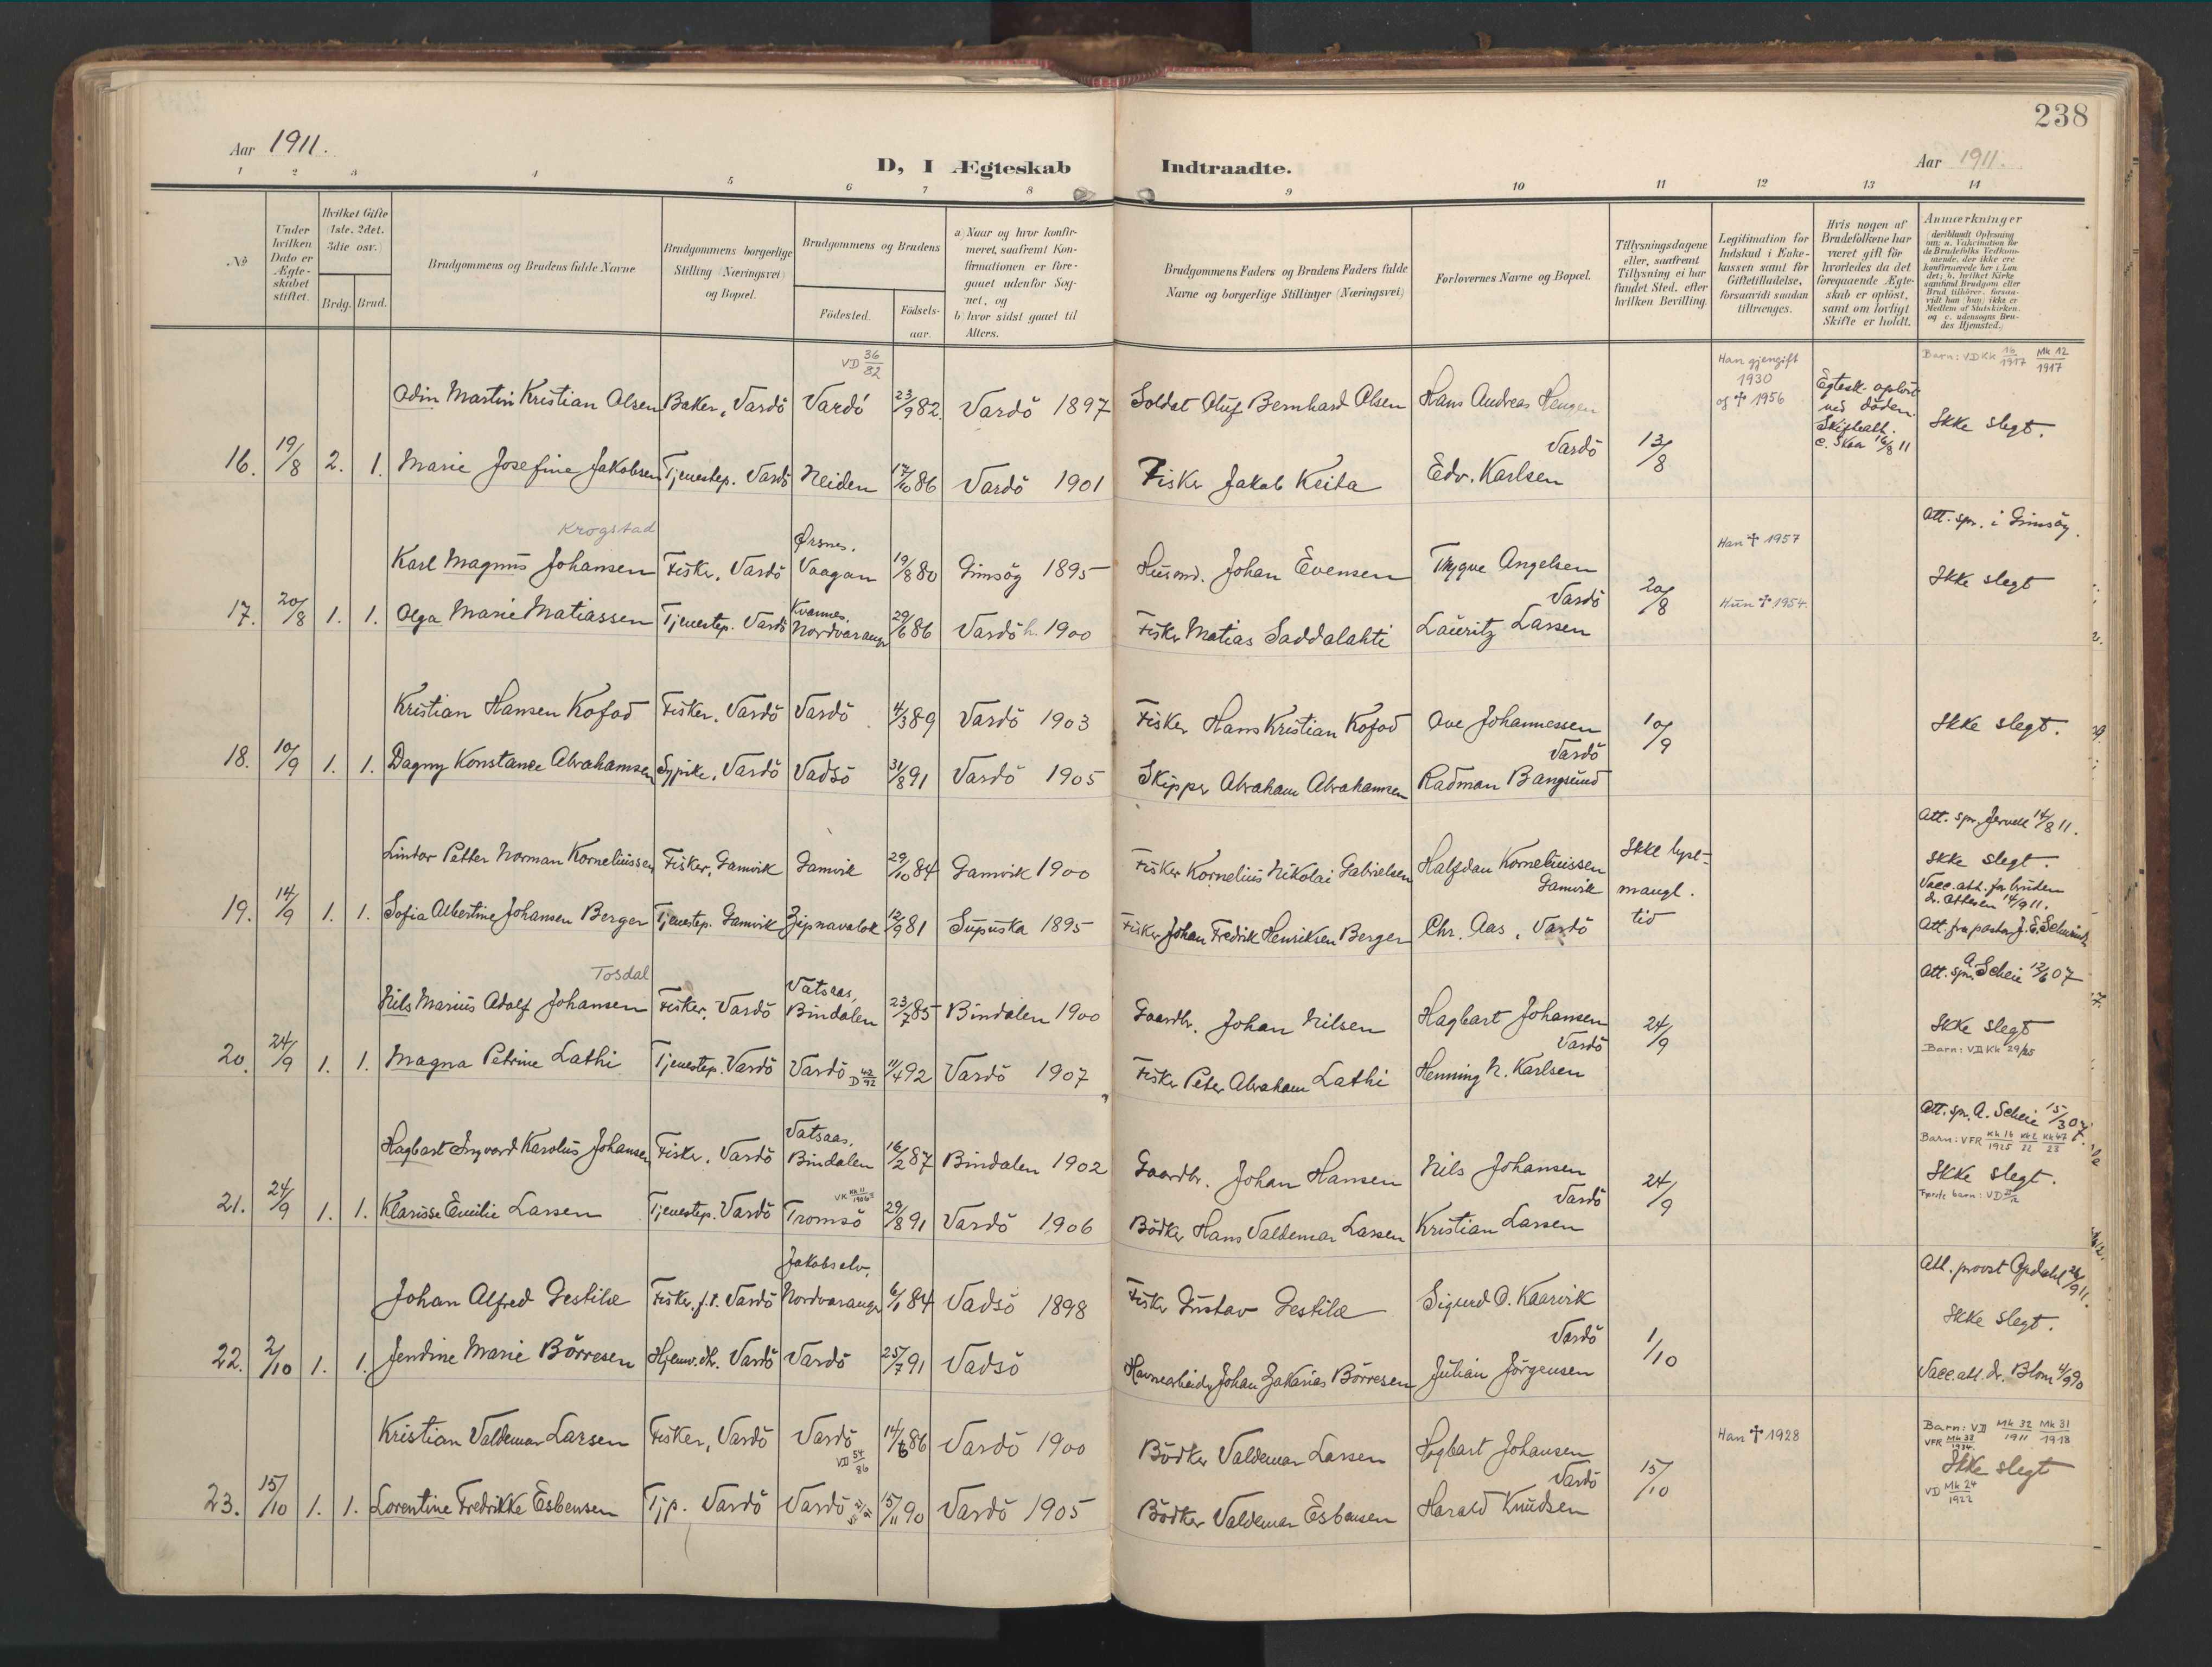 238
Aar 1911.
D, I Ægteskab Indtraadte.
Aar 1911.
1 2 3 4 5 6 7 8 9 10 11 12 13 14
No
Under hvilken Dato er Ægteskabet stiftet.
Hvilket Gifte (1ste, 2det, 3die osv.)
Brdg. Brud.
Brudgommens og Brudens fulde Navne
Brudgommens borgerlige Stilling (Næringsvei) og Bopæl.
Brudgommens og Brudens
Födested. Födsels-aar.
a) Naar og hvor konfirmeret, saafremt Konfirmationen er foregaaet udenfor Sognet, og
b) hvor sidst gaaet til Alters.
Brudgommens Faders og Brudens Faders fulde Navne og borgerlige Stillinger (Næringsvei)
Forlovernes Navne og Bopæl.
Tillysningsdagene eller, saafremt Tillysning ei har fundet Sted, efter hvilken Bevilling.
Legitimation for Indskud i Enkekassen samt for Giftetilladelse, forsaavidt saadan tiltrænges.
Hvis nogen af Brudefolkene har været gift før hvorledes da det foregaaende Ægteskab er opløst, samt om lovligt Skifte er holdt.
Anmerkninger
(deriblandt Oplysning om: a. Vakcination for de Brudefolks Vedkommende, der ikke ere konfirmerede her i Landet; b. hvilket Kirkesamfund Brudgom eller Brud tilhører, forsaavidt han (hun) ikke er Medlem af Statskirken, og c. udensogns Brudes Hjemsted.)
VD 36/82
Han gjengift 1930 og † 1956
Barn: VD Kk 16/1917 Mk 12/1917
Odin Martin Kristian Olsen Baker, Vardö Vardö 23/9 82. Vardö 1897 Soldat Oluf Bernhard Olsen Hans Andreas Haugen
Egtesk. opløst ved döden. Skifteatt. 16/8 11
Ikke slegt.
Vardö 13/8
16. 19/8 2. 1. Marie Josefine Jakobsen Tjenestep. Vardö Neiden 17/10 86 Vardö 1901 Fisker Jakob Keita Edv. Karlsen
Krogstad
Ørsnes.
Att. spr. i Gimsöy.
Han † 1957
Karl Magnus Johansen Fisker, Vardö Vaagan 19/8 80 Gimsöy 1895 Husmd. Johan Evensen Trygve Angelsen
Ikke slegt
Vardö 20/8 Hun † 1954.
17. 20/8 1. 1. Olga Marie Matiassen Tjenestep. Vardö Kvannes, Nordvaranger 29/6 86 Vardö h. 1900 Fisker Matias Saddalahti Lauritz Larsen
Kristian Hansen Kofod Fisker, Vardö Vardö 4/3 89 Vardö 1903 Fisker Hans Kristian Kofod Ove Johannessen 10/9 Ikke slegt.
Vardö
18. 10/9 1. 1. Dagny Konstance Abrahamsen Sypike, Vardö Vadsö 31/8 91 Vardö 1905 Skipper Abraham Abrahamsen Radman Bangsund
Att. spr. Jervell 14/8 11.
Lindor Petter Norman Korneliussen Fisker, Gamvik Gamvik 29/10 84 Gamvik 1900 Fisker Kornelius Nikolai Gabrielsen Halfdan Korneliussen Ikke lyst- Ikke slegt.
Gamvik mangl. Vacc. att. for bruden dr. Ottesen 14/9 11.
19. 14/9 1. 1. Sofia Albertine Johansen Berger Tjenestep. Gamvik Zipnavolok 12/9 81 Supuska 1895 Fisker Johan Fredrik Henriksen Berger Chr. Aas, Vardö tid
Att. fra pastor J. E.
Tosdal
Att. spr. A. Scheie 12/6 07
Vatsaas,
Nils Marius Adolf Johansen Fisker, Vardö Bindalen 23/7 85 Bindalen 1900 Gaardbr. Johan Nilsen Hagbart Johansen 24/9 Ikke slegt
Vardö Barn: VD Kk 29/25
20. 24/9 1. 1. Magna Petrine Lathi Tjenestep. Vardö Vardö D 42/92 11/4 92 Vardö 1907 Fisker Peter Abraham Lathi Henning N. Karlsen
Att. spr. A. Scheie 15/3 07.
Barn: VFR Kk 16/1925 Kk 2/22 Kk 47/23
Vatsaas,
Hagbart Ingvard Karolus Johansen Fisker, Vardö Bindalen 16/2 87 Bindalen 1902 Gaardbr. Johan Hansen Nils Johansen 24/9 Ikke slegt.
Vardö Første barn: VD
21. 24/9 1. 1. Klarisse Emilie Larsen Tjenestep. Vardö Tromsö 29/8 91 Vardö 1906 Bödker Hans Valdemar Larsen Kristian Larsen
Jakobselv,
Att. provst Opdahl 26/9 11.
Johan Alfred Gestilæ Fisker, f.t. Vardö Nordvaranger 6/1 84 Vadsö 1898 Fisker Gustav Gestilæ Sigurd O. Kaarvik
Vardö 1/10 Ikke slegt.
22. 2/10 1. 1. Jendine Marie Börresen Hjemv. dt. Vardö Vardö 25/7 91 Vadsö Havnearbeider Johan Zakarias Börresen Julian Jörgensen Vacc. att. dr. Blom 4/9 90
Kristian Valdemar Larsen Fisker, Vardö Vardö VD 54/86 14/6 86 Vardö 1900 Bödker Valdemar Larsen Hagbart Johansen Han † 1928
Barn: VD Mk 32/1911 Mk 31/1918 VFR Mk 32/1924
Vardö 15/10 Ikke slegt
VD Mk 24/1922
23. 15/10 1. 1. Lorentine Fredrikke Esbensen Tjp. Vardö Vardö 15/11 90 Vardö 1905 Bödker Valdemar Esbensen Harald Knudsen